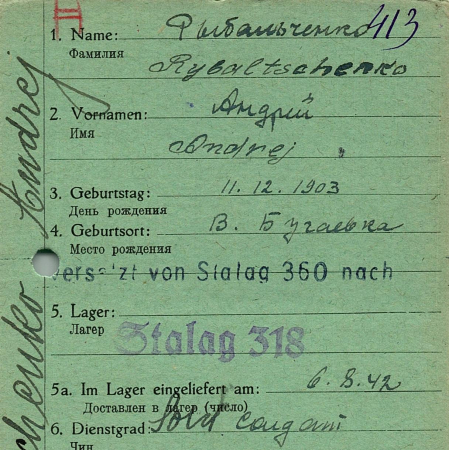 III
413
1. Name: Рыбальченко
Фамилия
Rybaltschenko
2. Vornamen: Андрей
Имя
Andrej
3. Geburtstag: 11. 12. 1903
День рождения
4. Geburtsort: В. Бугаевка
Место рождения
versetzt von Stalag 360 nach
5. Lager:
Лагер
Stalag 318
5a. Im Lager eingeliefert am: 6. 8. 42
Доставлен в лагер (число)
6. Dienstgrad: Sold солдат
Чин
chenko Andrej